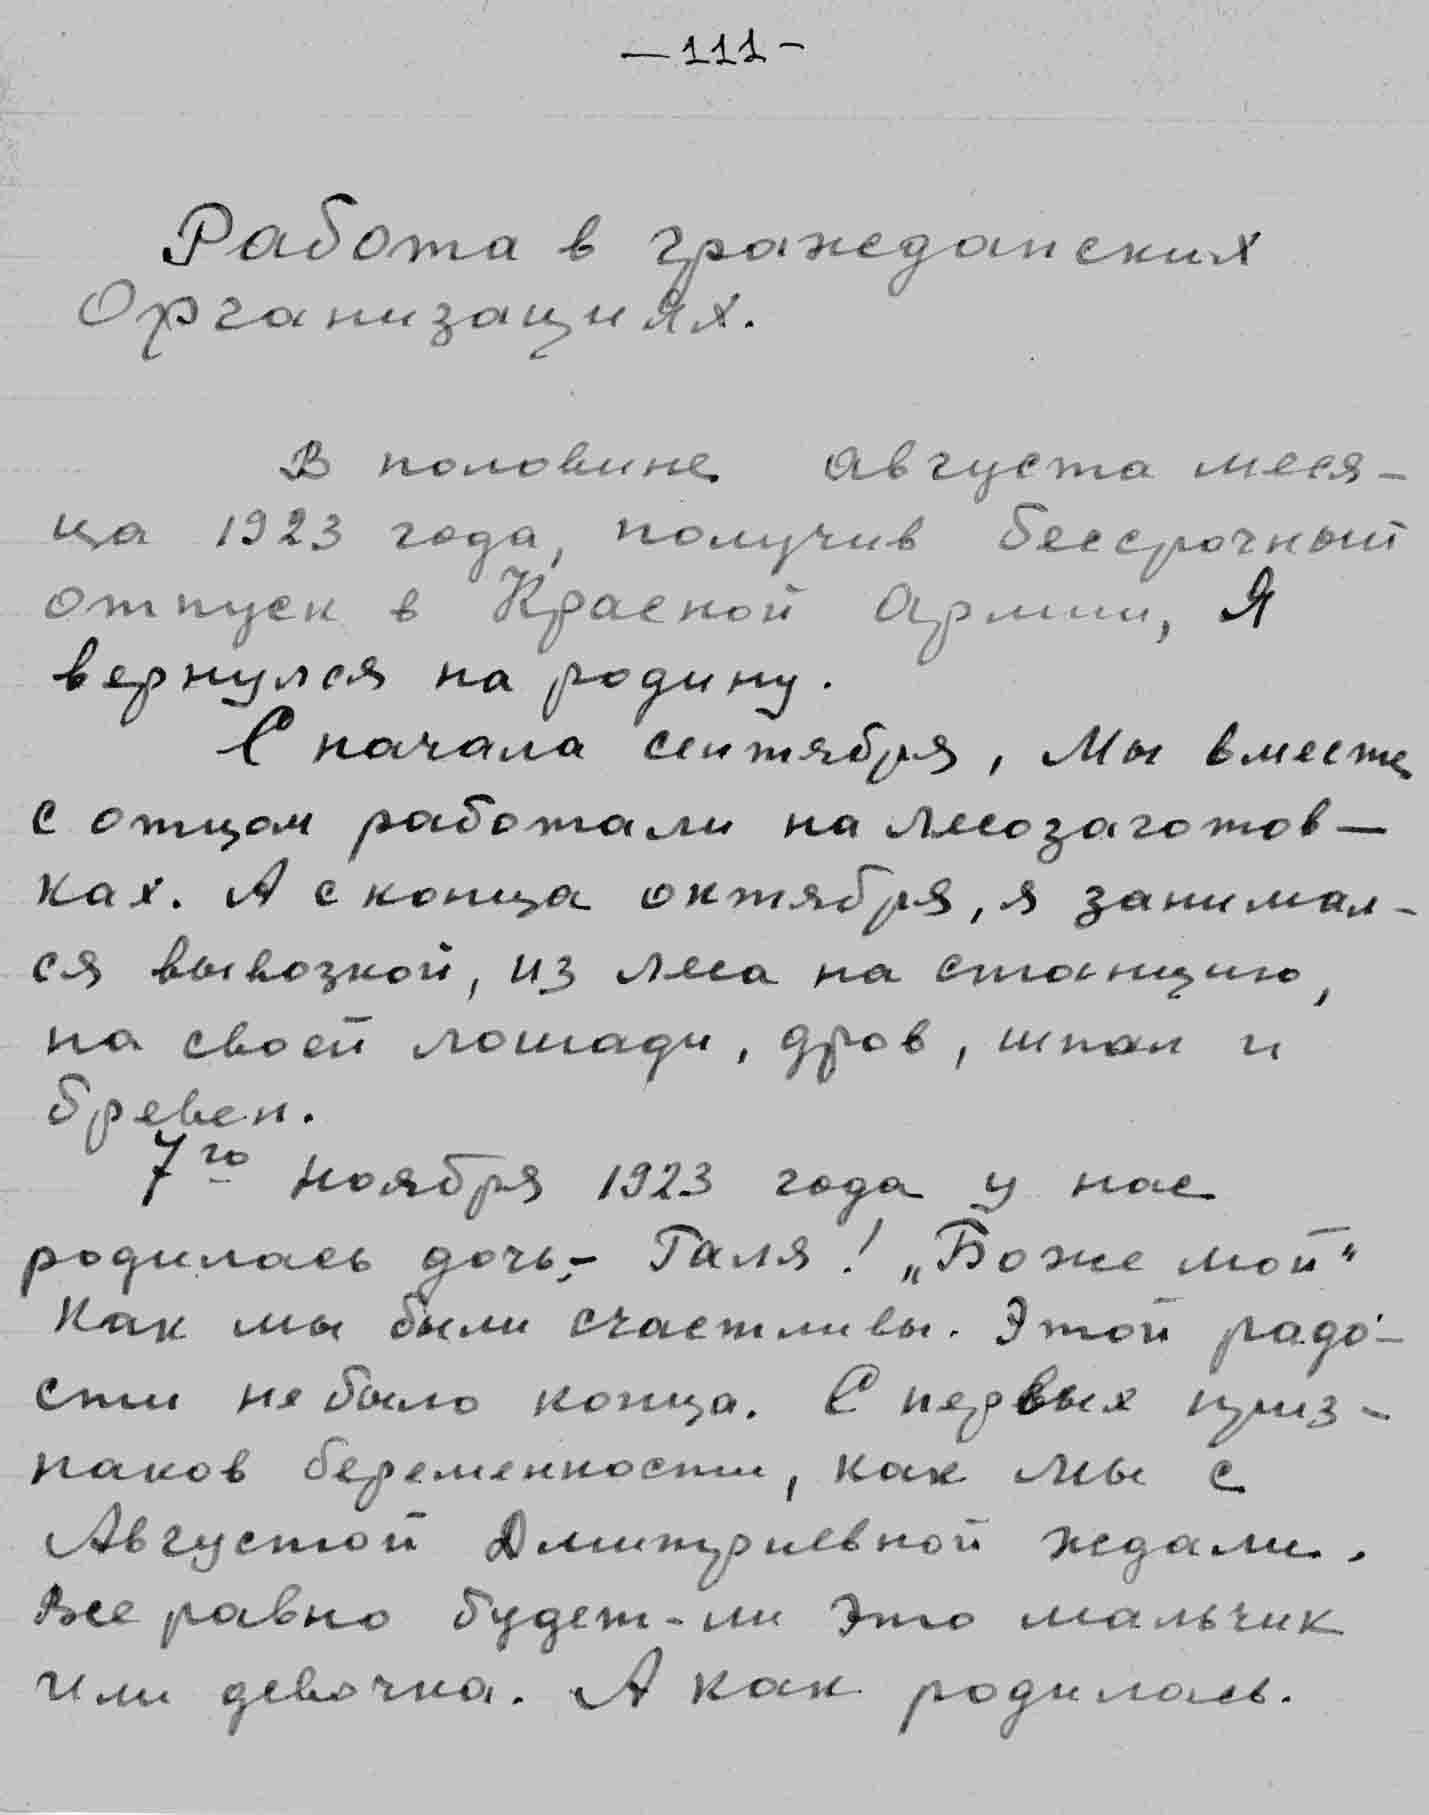 — 111 –
Работа в гражданских
Организациях.
В половине августа меся-
ца 1923 года, получив бессрочный
отпуск в Красной Армии, Я
вернулся на родину.
С начала сентября, Мы вместе
с отцом работали на лесозаготов-
ках. А с конца октября, я занимал-
ся вывозкой, из леса на станцию,
на своей лошади, дров, шпал и
бревен.
7го ноября 1923 года у нас
родилась дочь,- Галя! „Боже мой"
Как мы были счастливы. Этой радо-
сти не было конца. С первых приз-
наков беременности, как мы с
Августой Дмитриевной ждали.
Все равно будет-ли это мальчик
или девочка. А как родилась.